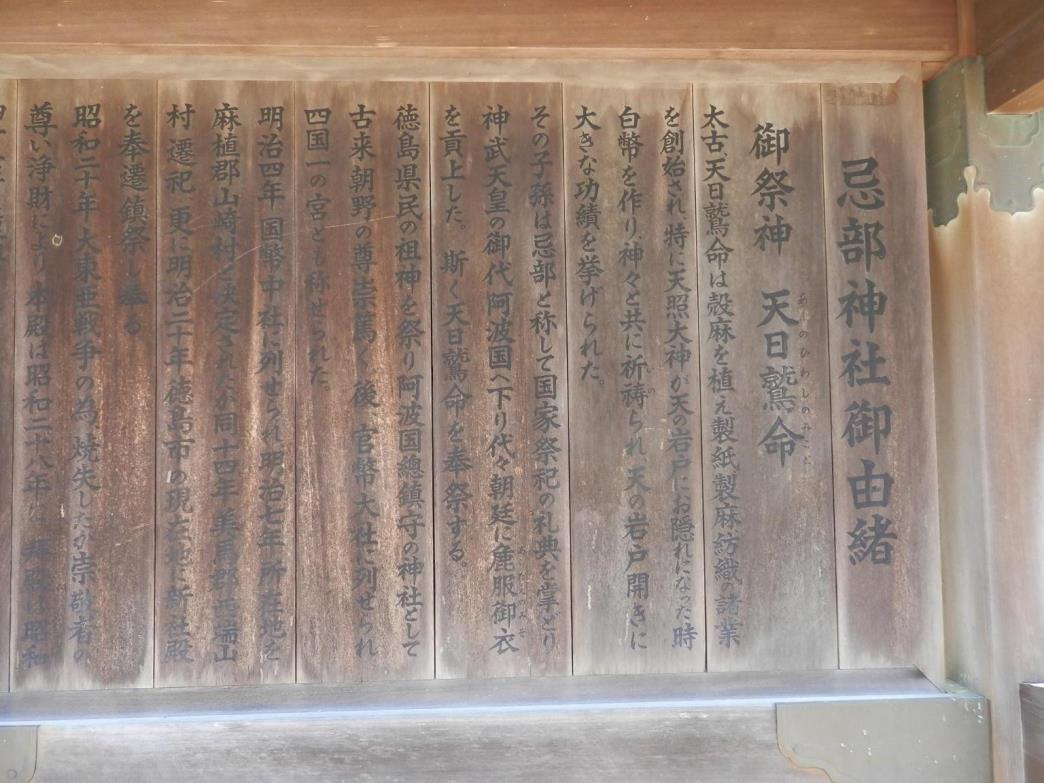 忌部神社御由緒
御祭神 天日鷲命
あめのひわしのみこと
太古、天日鷲命は殻麻を植え製紙製麻紡織の諸業
を創始され、特に天照大神が天の岩戸にお隠れになった時
白幣を作り、神々と共に祈祷られ 天の岩戸開きに
いの
大きな功績を挙げられた。
その子孫は忌部と称して国家祭祀の礼典を掌どり
神武天皇の御代阿波国へ下り代々朝廷に麁服御衣
あらたえのみそ
を貢上した。斯く天日鷲命を奉祭する。
徳島県民の祖神を祭り阿波国總鎮守の神社として
古来朝野の尊崇篤く後、官幣大社に列せられ
四国一の宮とも称せられた。
明治四年 国幣中社に列せられ明治七年所在地を
麻植郡山崎村と決定されたが同十四年美馬郡西端山
村に遷祀 更に明治二十年徳島市の現在地に新社殿
を奉遷鎮祭し奉る
昭和二十年、大東亜戦争の為、焼失したが崇敬者の
尊い浄財により本殿は昭和二十八年に 拝殿は昭和